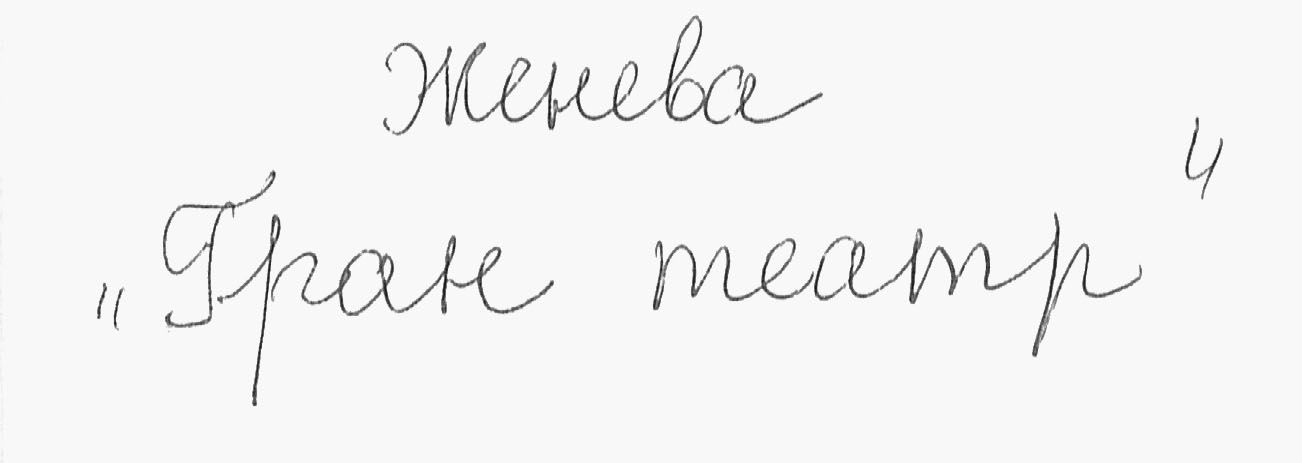 Женева
„Гран театр"